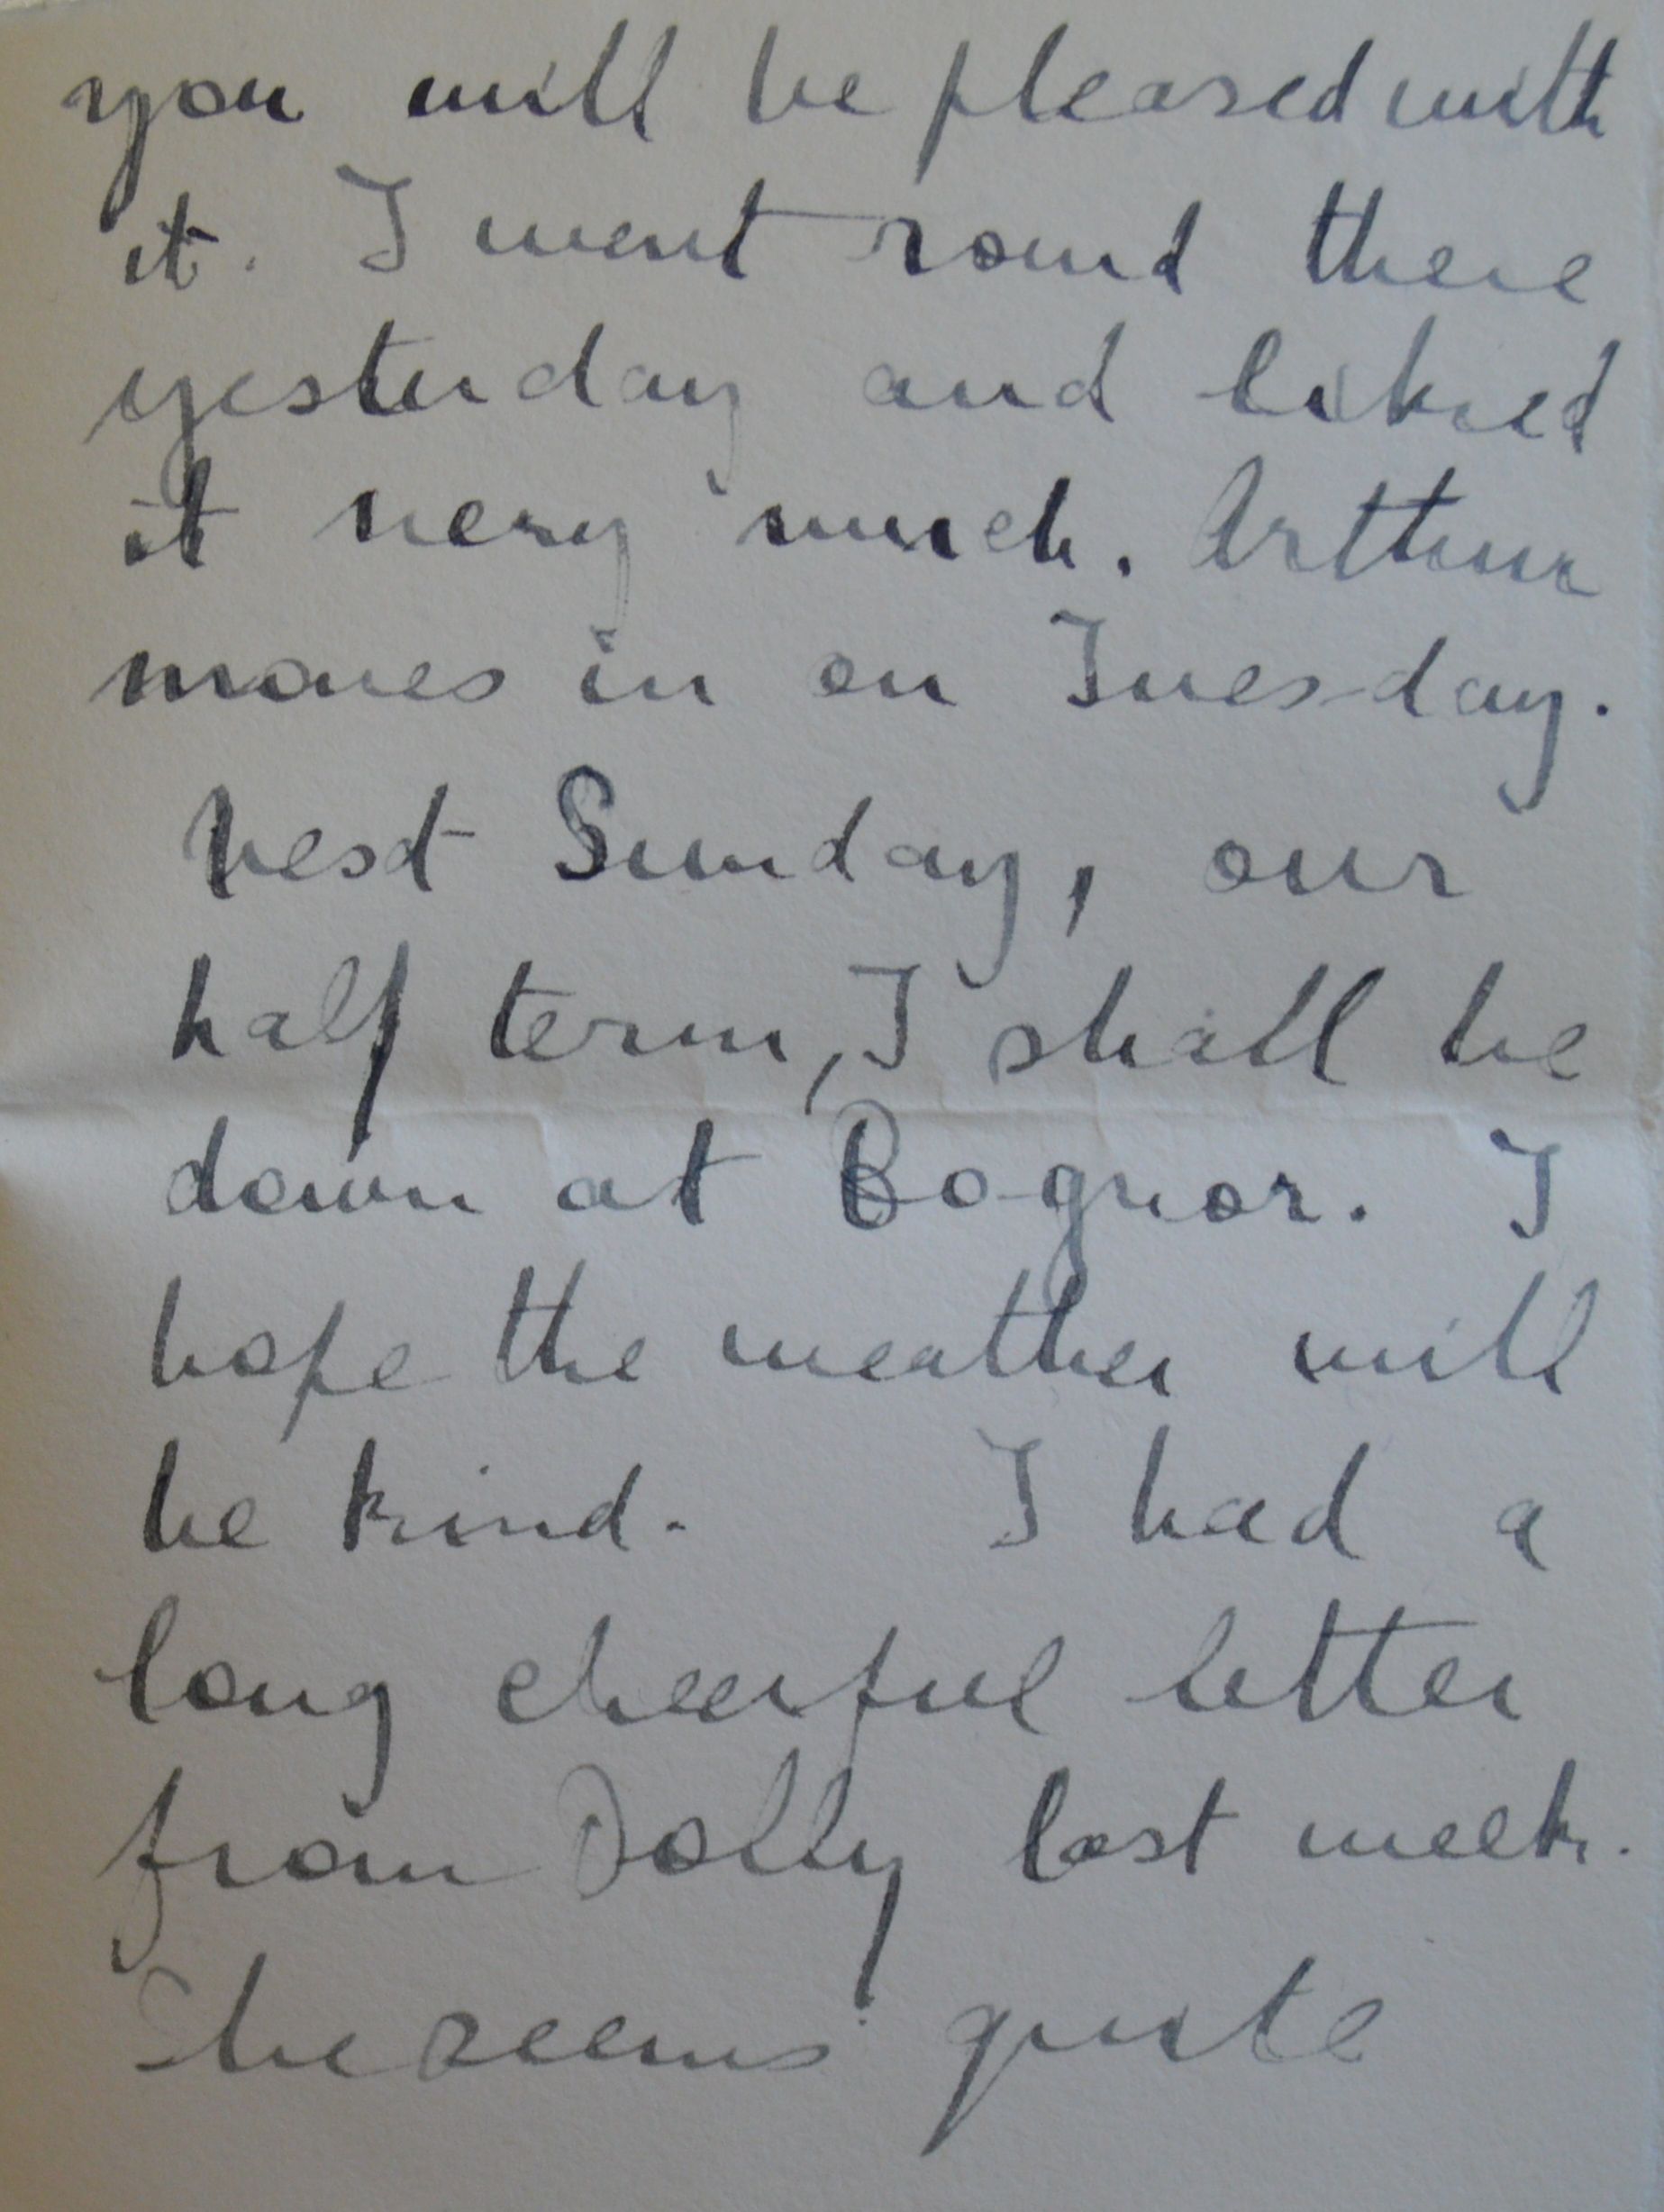 you will be pleased with
it. I went round there
yesterday and liked
it very much. Arthur
moves in on Tuesday.
Next Sunday, our
half term, I shall be
down at Bognor. I
hope the weather will
be kind. I had a
long cheerful letter
from Dolly last week.
She seems quite